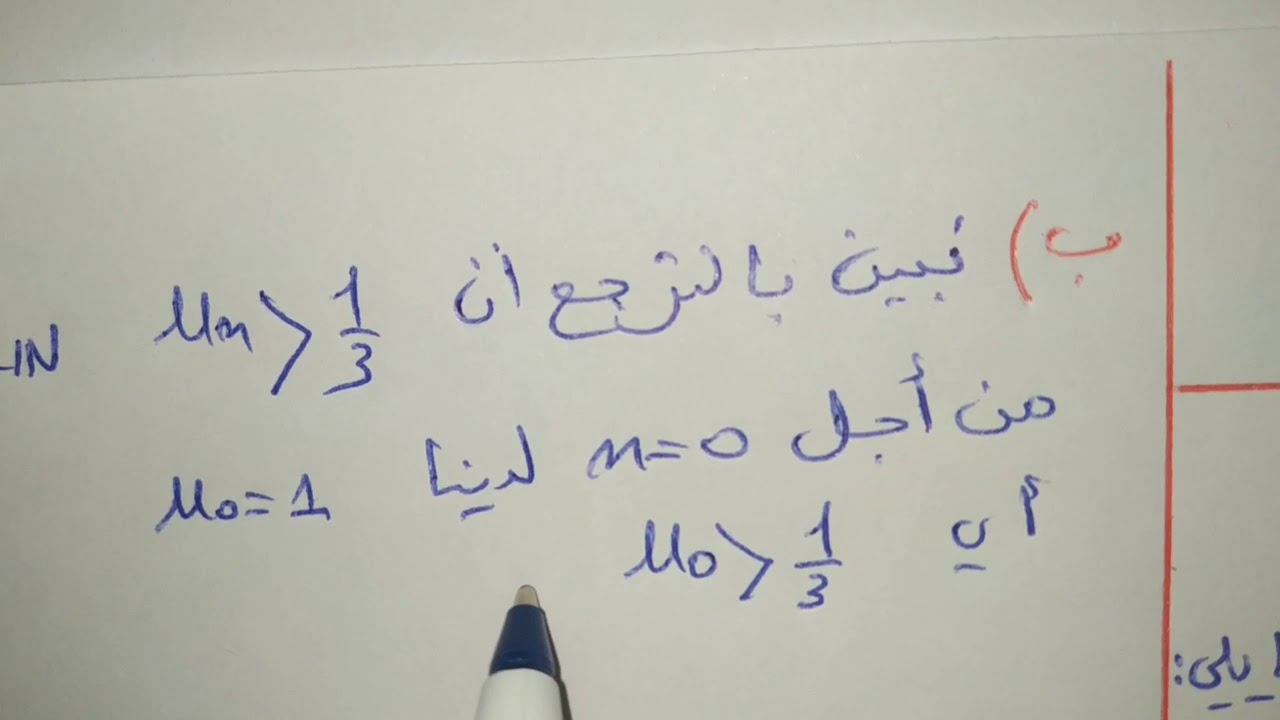 ب) نبين بالترجع أن Un > 1/3 IN
من أجل n=0 لدينا U0=1
أي U0 > 1/3
يلي: